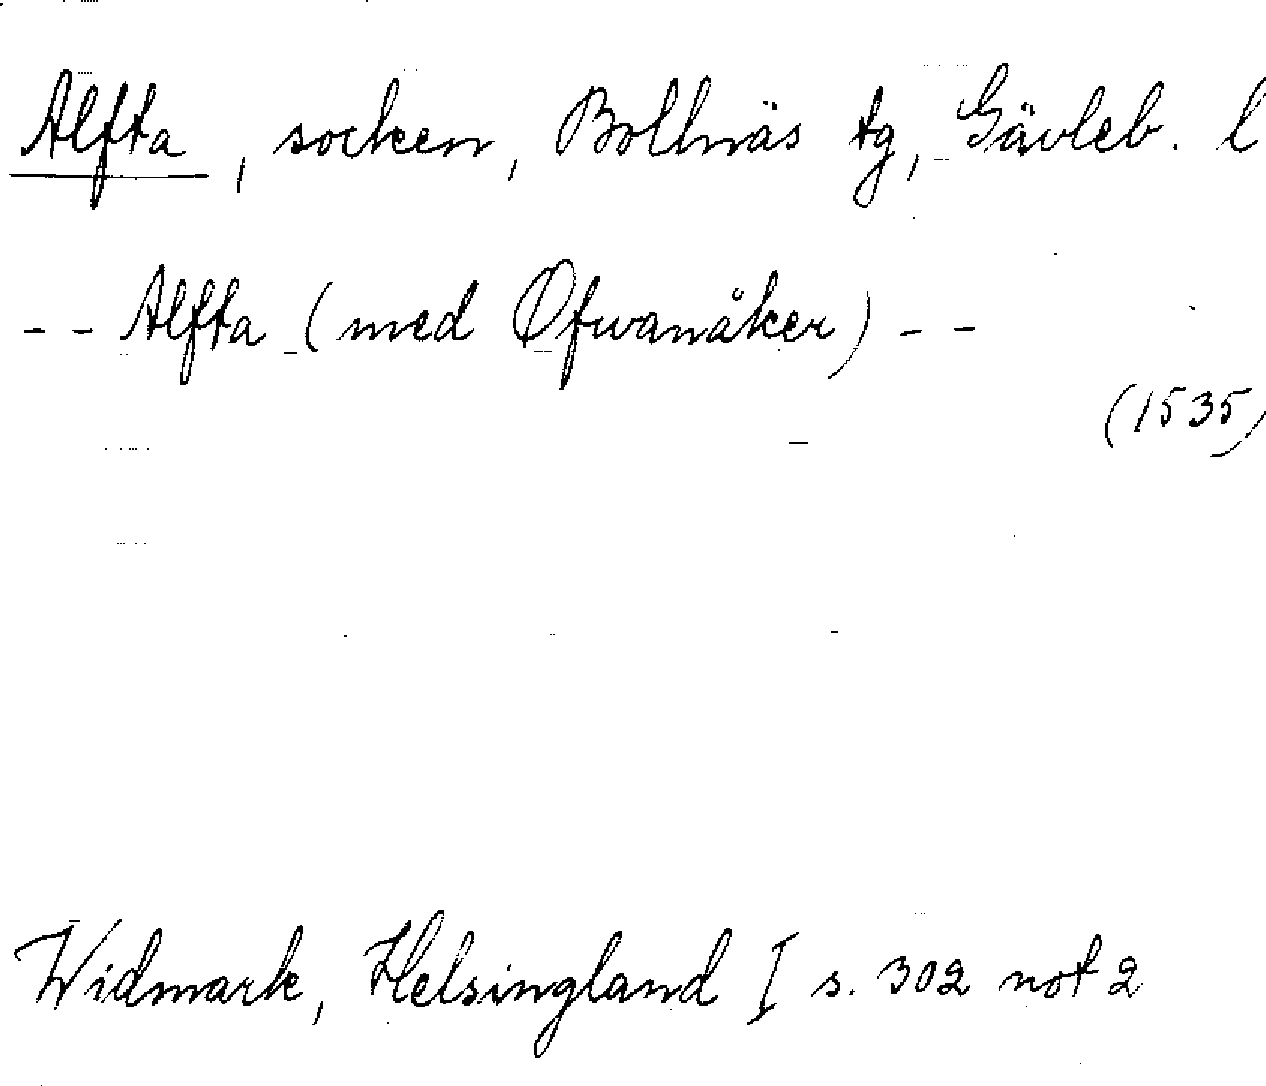 Alfta, socken, Bollnäs tg, Gävleb. l
-- Alfta (med Ofwanåker) --
(1535)
Widmark, Helsingland I s. 302 not 2